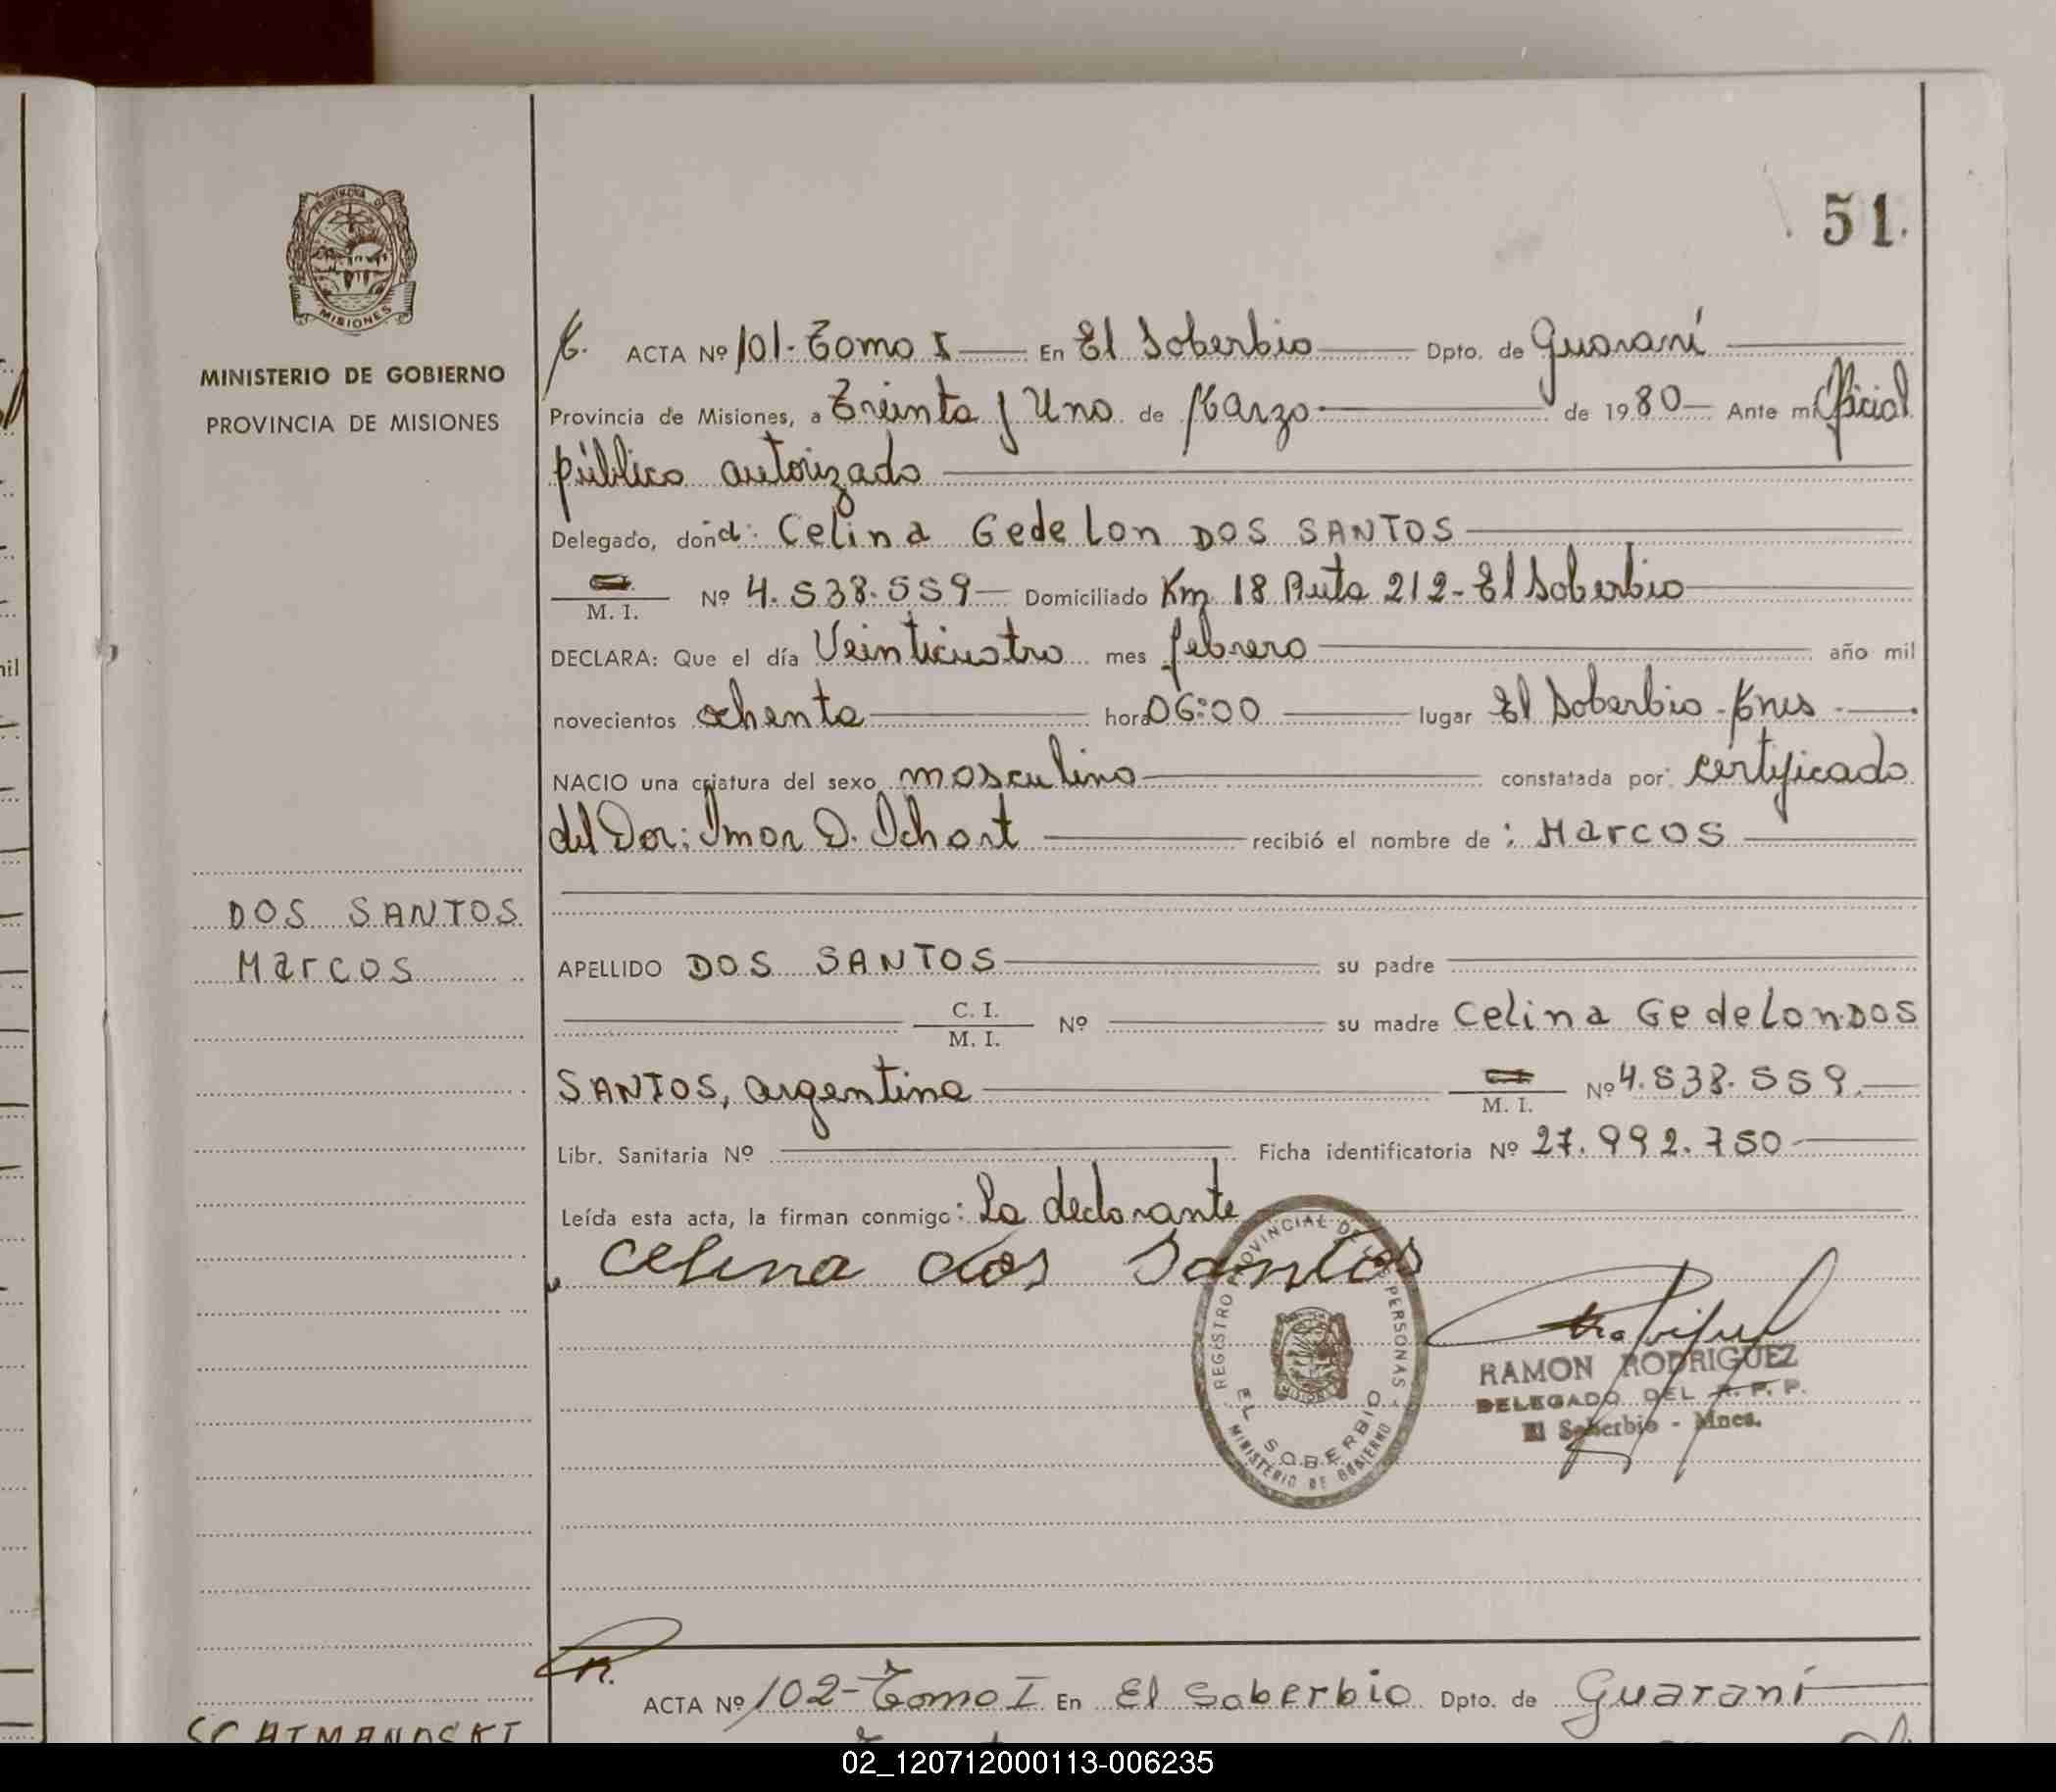 51.
MISIONES
MINISTERIO DE GOBIERNO
PROVINCIA DE MISIONES
DOS SANTOS
Marcos
ACTA Nº 101-Tomo I En El Soberbio Dpto. de Guaraní
Provincia de Misiones, a Treinta y Uno de Marzo de 1980 Ante mi Oficial
público autorizado
Delegado, dond: Celina Gedelon DOS SANTOS
M. I. Nº 4.538.559 Domiciliado Km 18 Ruta 212-El Soberbio
DECLARA: Que el día Veinticuatro mes febrero año mil
novecientos ochenta hora 06:00 lugar El Soberbio
NACIO una criatura del sexo masculino constatada por: certificado
del Dor: D. recibió el nombre de: Marcos
APELLIDO DOS SANTOS su padre
C. I.
M. I. Nº su madre Celina Gedelon DOS
SANTOS, argentina M. I. Nº 4.538.559.
Libr. Sanitaria Nº Ficha identificatoria Nº 27.992.750
Leída esta acta, la firman conmigo: La declarante
Celina dos Santos
REGISTRO PROVINCIAL DE LAS PERSONAS
EL SOBERBIO
MINISTERIO DE GOBIERNO
RAMON RODRIGUEZ
DELEGADO DEL R. P. P.
El Soberbio - Mnes.
ACTA Nº 102-Tomo I En El Soberbio Dpto. de Guaraní
02_120712000113-006235